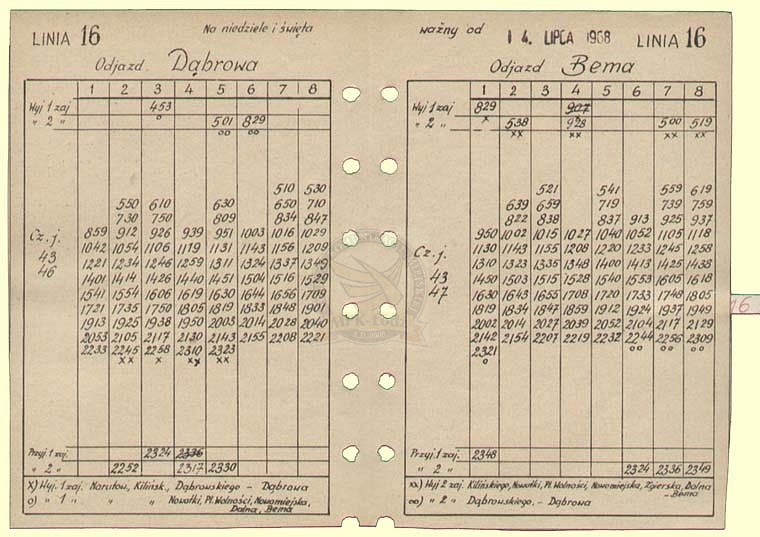 LINIA 16 Na niedziele i święta ważny od 14. LIPCA 1968 LINIA 16
Odjazd Dąbrowa
1 2 3 4 5 6 7 8
Wyj 1 zaj 453
o
" 2 " 501 829
oo oo
510 530
550 610 630 650 710
730 750 809 834 847
Cz. j. 43 46
859 912 926 939 951 1003 1016 1029
1042 1054 1106 1119 1131 1143 1156 1209
1221 1234 1246 1259 1311 1324 1337 1349
1401 1414 1426 1440 1451 1504 1516 1529
1541 1554 1606 1619 1630 1644 1656 1709
1721 1735 1750 1805 1819 1833 1848 1901
1913 1925 1938 1950 2003 2014 2028 2040
2053 2105 2117 2130 2143 2155 2208 2221
2233 2245 2258 2310 2323
xx x xx xx
Przyj. 1 zaj. 2324 2336
" 2 " 2252 2317 2330
x) Wyj. 1 zaj. Narutow., Kilińsk., Dąbrowskiego - Dąbrowa
o) " 1 " " " Nowotki, Pl. Wolności, Nowomiejska,
Dolna, Bema
Odjazd Bema
1 2 3 4 5 6 7 8
Wyj 1 zaj 829 907
x
" 2 " 538 928 500 519
xx xx xx xx
521 541 559 619
639 659 719 739 759
822 838 837 913 925 937
Cz. j. 43 47
950 1002 1015 1027 1040 1052 1105 1118
1130 1143 1155 1208 1220 1233 1245 1258
1310 1323 1335 1348 1400 1413 1425 1438
1450 1503 1515 1528 1540 1553 1605 1618
1630 1643 1655 1708 1720 1733 1748 1805
1819 1834 1847 1859 1912 1924 1937 1949
2002 2014 2027 2039 2052 2104 2117 2129
2142 2154 2207 2219 2232 2244 2256 2309
oo oo oo
2321
o
Przyj. 1 zaj. 2348
" 2 " 2324 2336 2349
xx) Wyj 2 zaj. Kilińskiego, Nowotki, Pl. Wolności, Nowomiejska, Zgierska, Dolna
- Bema
oo) " 2 " Dąbrowskiego, - Dąbrowa
16